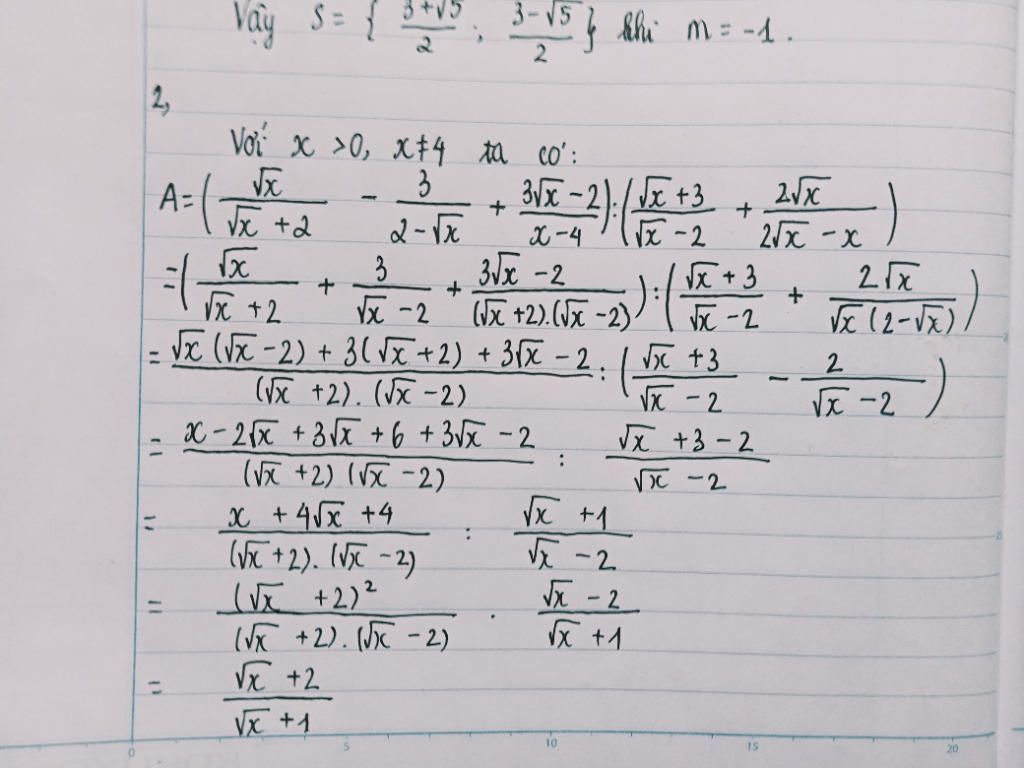 Vậy S = { (3+√5)/2 ; (3-√5)/2 } khi m = -1.
2,
Với x >0, x≠4 ta có:
A = ( √x/(√x +2) - 3/(2-√x) + (3√x -2)/(x-4) ) : ( (√x +3)/(√x -2) + 2√x/(2√x - x) )
= ( √x/(√x +2) + 3/(√x -2) + (3√x -2)/((√x +2).(√x -2)) ) : ( (√x +3)/(√x -2) + 2√x/(√x (2-√x)) )
= (√x (√x -2) + 3(√x +2) + 3√x -2)/((√x +2). (√x -2)) : ( (√x +3)/(√x -2) - 2/(√x -2) )
= (x -2√x +3√x +6 +3√x -2)/((√x +2) (√x -2)) : (√x +3 -2)/(√x -2)
= (x +4√x +4)/((√x +2). (√x -2)) : (√x +1)/(√x -2)
= (√x +2)²/((√x +2). (√x -2)) . (√x -2)/(√x +1)
= (√x +2)/(√x +1)
0 5 10 15 20